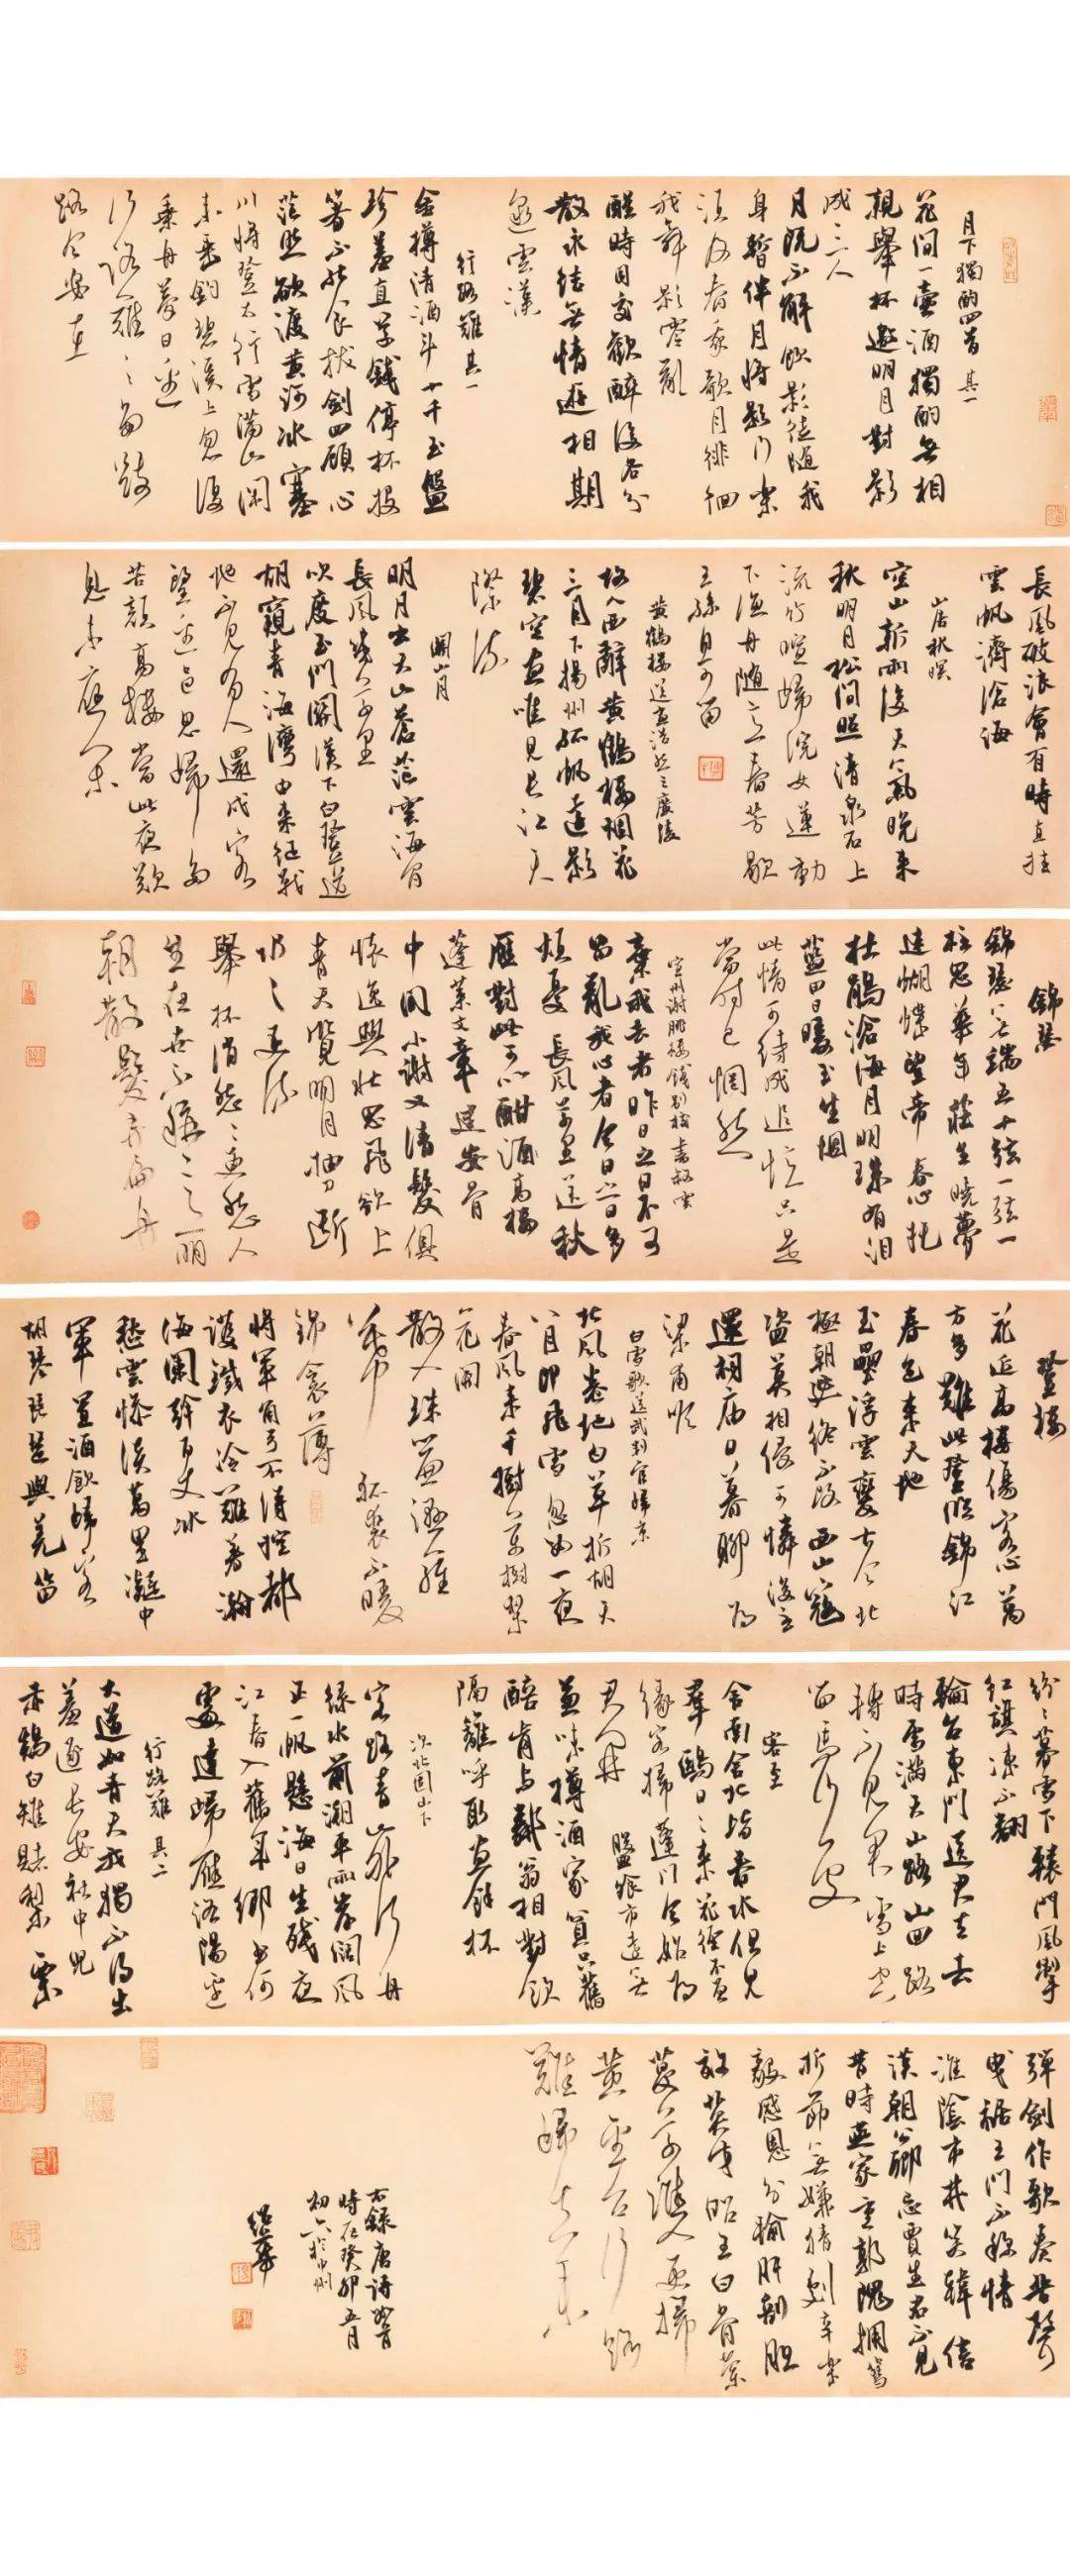 月下獨酌四首 其一
花間一壺酒獨酌無相
親舉杯邀明月對影
成三人
月既不解飲影徒隨我
身暫伴月將影行樂
須及春我歌月徘徊
我舞影零亂
醒時同交歡醉後各分
散永結無情遊相期
邈雲漢
行路難 其一
金樽清酒斗十千玉盤
珍羞直萬錢停杯投
箸不能食拔劍四顧心
茫然欲渡黃河冰塞
川將登太行雪滿山閑
來垂釣碧溪上忽復
乘舟夢日邊
行路難〻多歧
路今安在
長風破浪會有時直挂
雲帆濟滄海
山居秋暝
空山新雨後天氣晚來
秋明月松間照清泉石上
流竹喧歸浣女蓮動
下漁舟隨意春芳歇
王孫自可留
黃鶴樓送孟浩然之廣陵
故人西辭黃鶴樓烟花
三月下揚州孤帆遠影
碧空盡唯見長江天
際流
關山月
明月出天山蒼茫雲海間
長風幾萬里
吹度玉門關漢下白登道
胡窺青海灣由來征戰
地不見有人還戍客
望邊邑思歸多
苦顏高樓當此夜歎
息未應閑
錦瑟
錦瑟無端五十弦一弦一
柱思華年莊生曉夢
迷蝴蝶望帝春心托
杜鵑滄海月明珠有淚
藍田日暖玉生烟
此情可待成追憶只是
當時已惘然
宣州謝朓樓餞別校書叔雲
棄我去者昨日之日不可
留亂我心者今日之日多
煩憂長風萬里送秋
雁對此可以酣酒高樓
蓬萊文章建安骨
中間小謝又清發俱
懷逸興壯思飛欲上
青天覽明月抽刀斷
水水更流
舉杯消愁〻更愁人
生在世不稱意明
朝散髮弄扁舟
登樓
花近高樓傷客心萬
方多難此登臨錦江
春色來天地
玉壘浮雲變古今北
極朝廷終不改西山寇
盜莫相侵可憐後主
還祠廟日暮聊為
梁甫吟
白雪歌送武判官歸京
北風卷地白草折胡天
八月即飛雪忽如一夜
春風來千樹萬樹梨
花開
散入珠簾濕羅
幕狐裘不暖
錦衾薄
將軍角弓不得控都
護鐵衣冷難著瀚
海闌幹百丈冰
愁雲慘淡萬里凝中
軍置酒飲歸客
胡琴琵琶與羌笛
紛〻暮雪下轅門風掣
紅旗凍不翻
輪台東門送君去去
時雪滿天山路山回路
轉不見君雪上空
留馬行處
客至
舍南舍北皆春水但見
群鷗日〻來花徑不曾
緣客掃蓬門今始為
君開盤飧市遠無
兼味樽酒家貧只舊
醅肯與鄰翁相對飲
隔籬呼取盡餘杯
次北固山下
客路青山外行舟
綠水前潮平兩岸闊風
正一帆懸海日生殘夜
江春入舊年鄉書何
處達歸雁洛陽邊
行路難 其二
大道如青天我獨不得出
羞逐長安社中兒
赤雞白雉賭梨栗
彈劍作歌奏苦聲
曳裾王門不稱情
淮陰市井笑韓信
漢朝公卿忌賈生君不見
昔時燕家重郭隗擁篲
折節無嫌猜劇辛樂
毅感恩分輸肝剖膽
效英才昭王白骨縈
蔓草誰人更掃
黃金台行路
難歸去來
右錄唐詩十首
時在癸卯五月
初六於中州